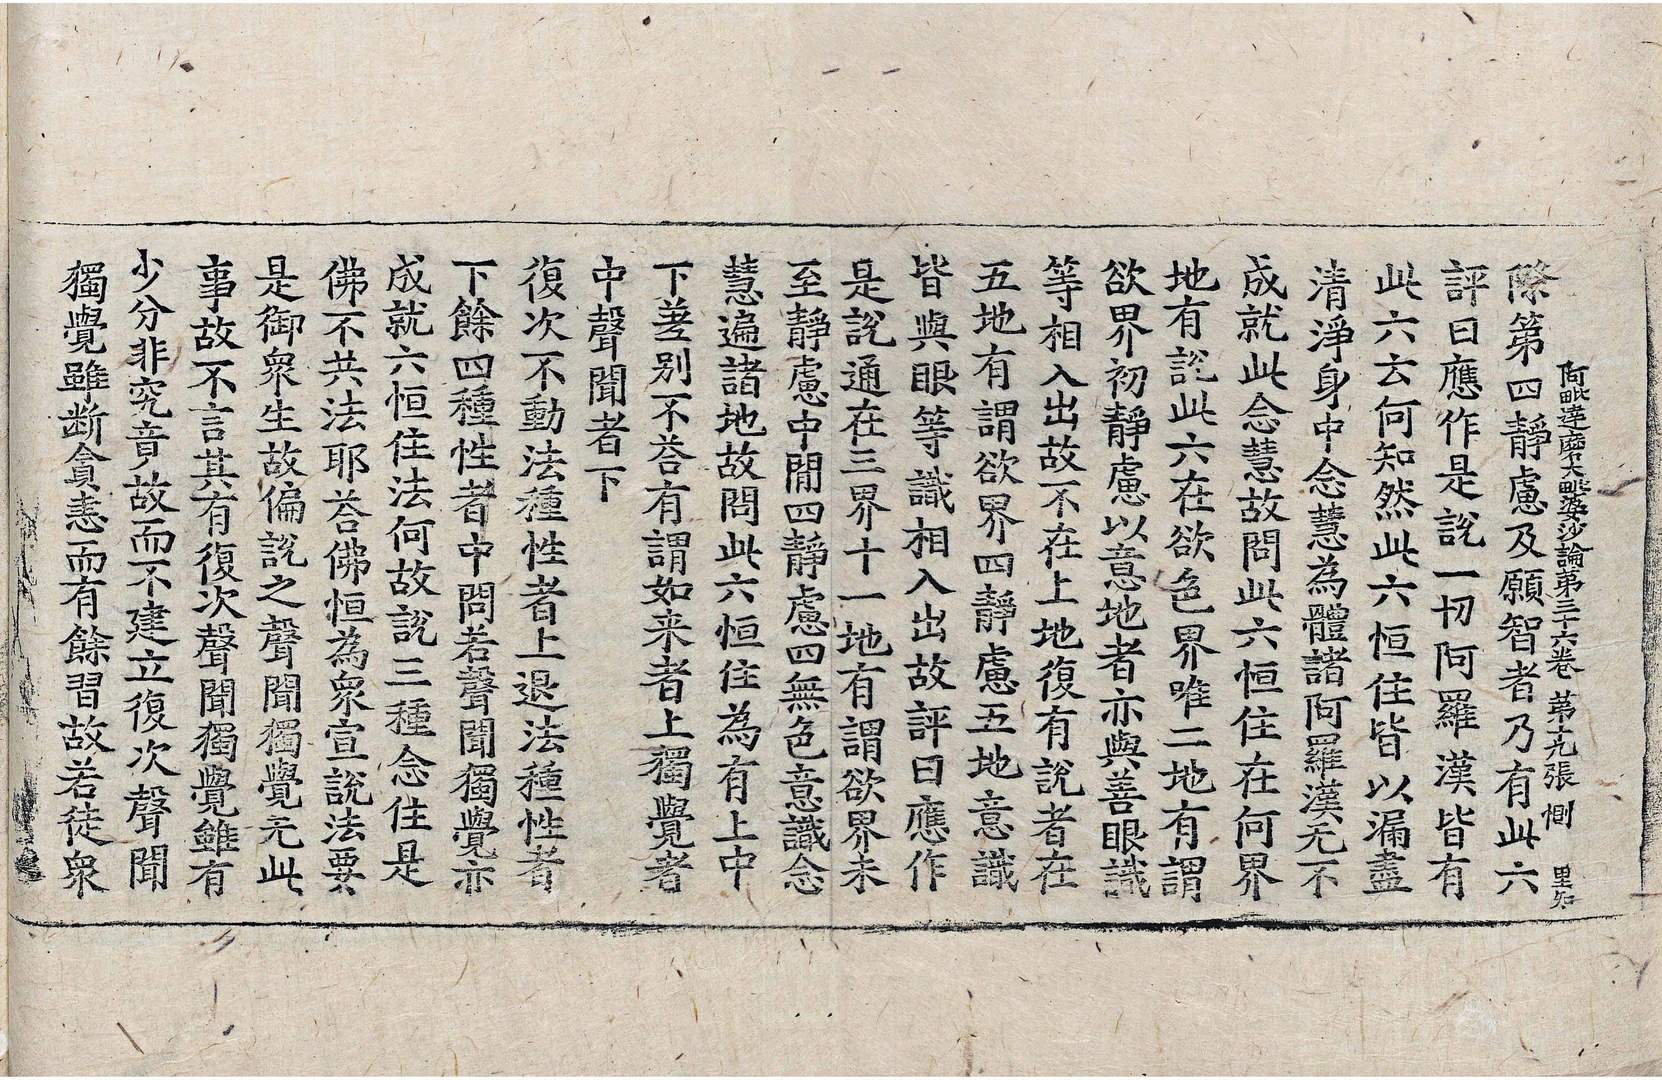 阿毗達磨大毗婆沙論第三十六卷 第十九張 惻
際第四靜慮及願智者乃有此六
評曰應作是說一切阿羅漢皆有
此六云何知然此六恒住皆以漏盡
清淨身中念慧為體諸阿羅漢无不
成就此念慧故問此六恒住在何界
地有說此六在欲色界唯二地有謂
欲界初靜慮以意地者亦與善眼識
等相入出故不在上地復有說者在
五地有謂欲界四靜慮五地意識
皆與眼等識相入出故評曰應作
是說通在三界十一地有謂欲界未
至靜慮中閒四靜慮四無色意識念
慧遍諸地故問此六恒住為有上中
下差别不荅有謂如来者上獨覺者
中聲聞者下
復次不動法種性者上退法種性者
下餘四種性者中問若聲聞獨覺亦
成就六恒住法何故說三種念住是
佛不共法耶荅佛恒為衆宣說法要
是御衆生故偏說之聲聞獨覺无此
事故不言其有復次聲聞獨覺雖有
少分非究竟故而不建立復次聲聞
獨覺雖断貪恚而有餘習故若徒衆